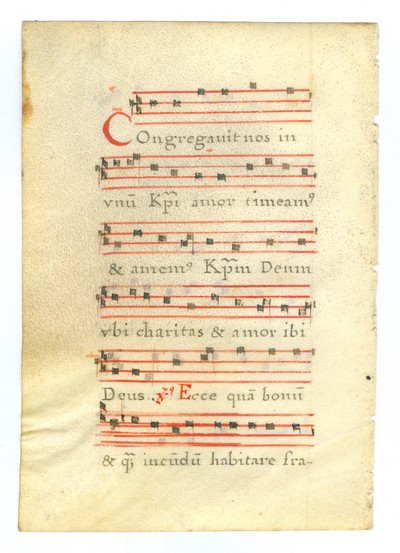 Congregavit nos in
vnũ Kp̃i amor timeamꝰ
& amemꝰ Kp̃m Deum
vbi charitas & amor ibi
Deus. Ecce quã bonũ
& q̃ incũdũ habitare fra-